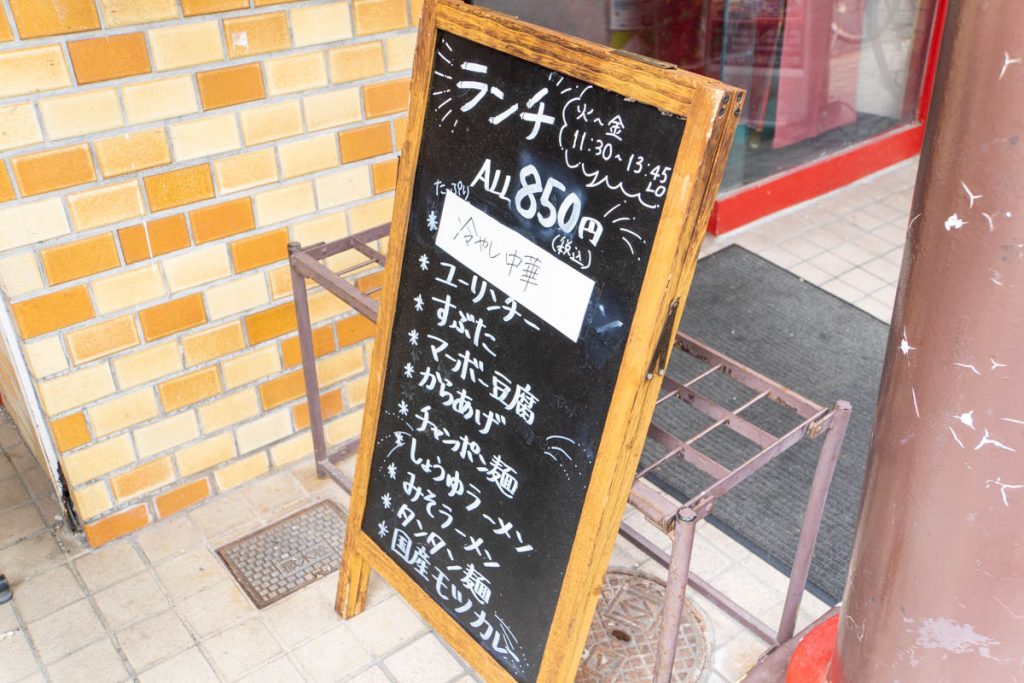 ランチ
火〜金
11:30〜13:45
LO
ALL 850円
(税込)
* 冷やし中華
* ユーリンチー
* すぶた
* マーボー豆腐
* からあげ
* チャンポン麺
しょうゆラーメン
* みそラーメン
* タンタン麺
* 国産モツカレー